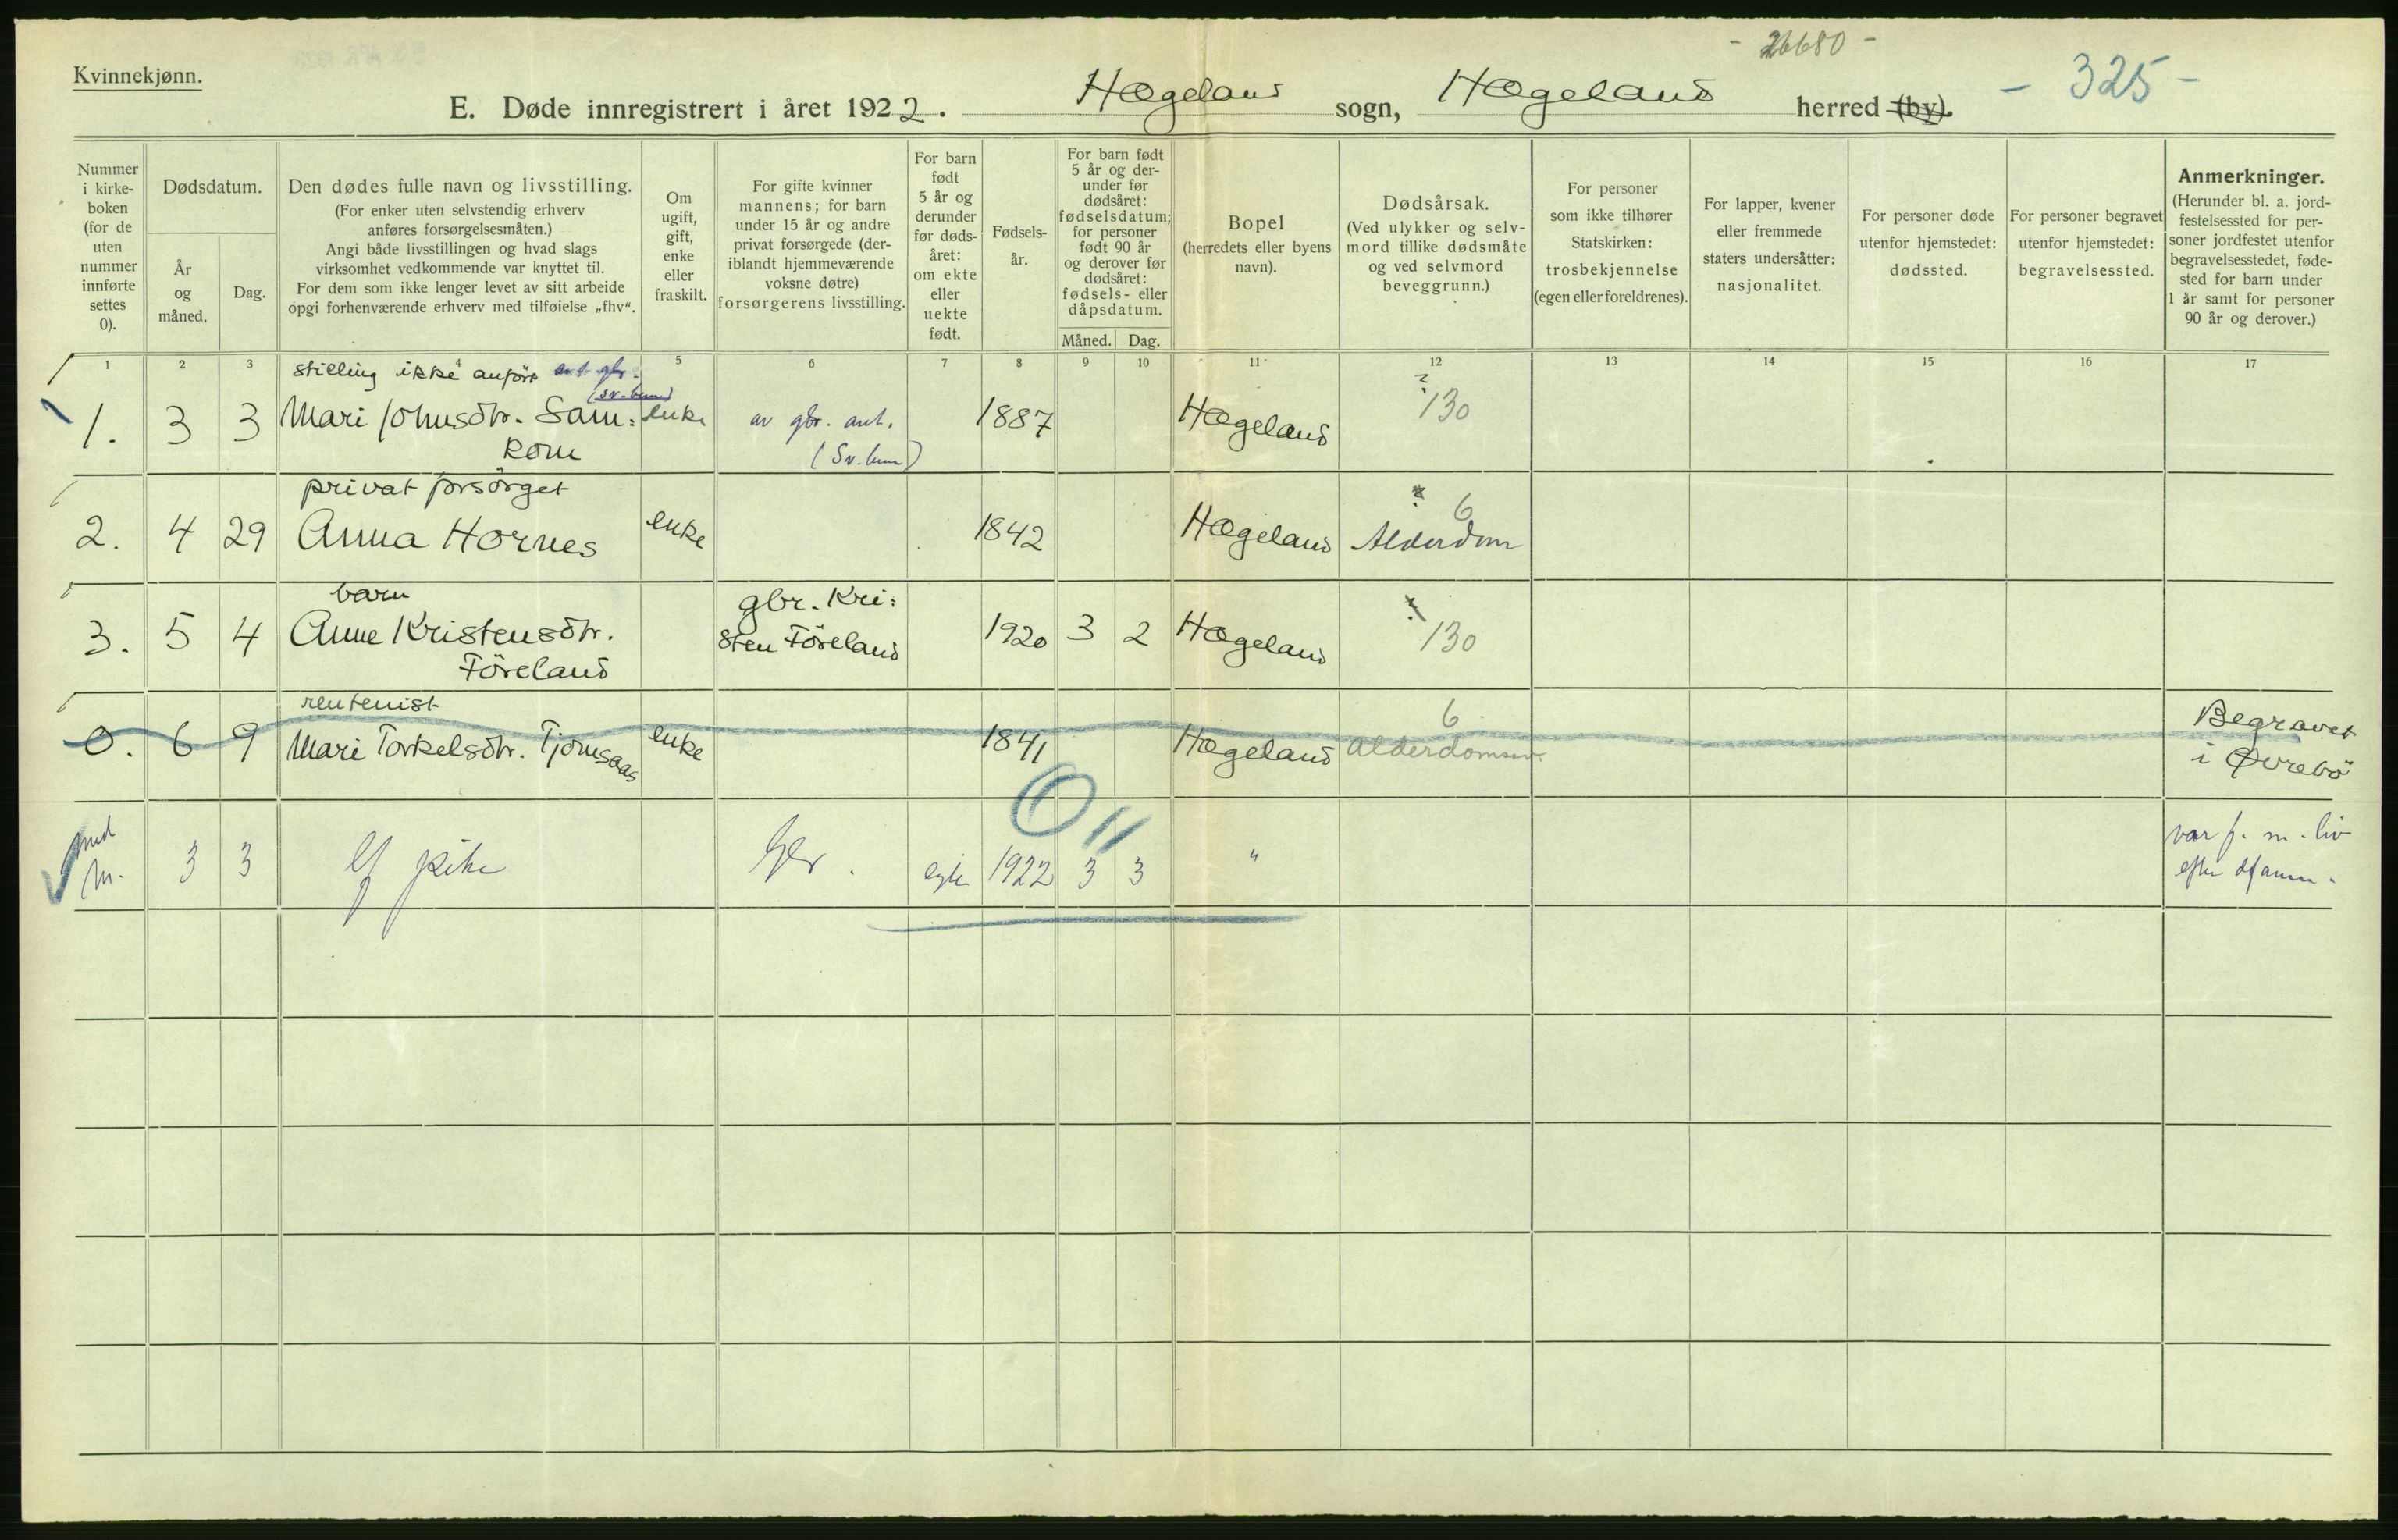 - 26680 -
Kvinnekjønn.
E. Døde innregistrert i året 1922. Hægeland sogn, Hægeland herred (by).
- 325 -
Nummer
i kirke-
boken
(for de
uten
nummer
innførte
settes
0).
Dødsdatum.
År
og
måned.
Dag.
Den dødes fulle navn og livsstilling.
(For enker uten selvstendig erhverv
anføres forsørgelsesmåten.)
Angi både livsstillingen og hvad slags
virksomhet vedkommende var knyttet til.
For dem som ikke lenger levet av sitt arbeide
opgi forhenværende erhverv med tilføielse „fhv“.
Om
ugift,
gift,
enke
eller
fraskilt.
For gifte kvinner
mannens; for barn
under 15 år og andre
privat forsørgede (der-
iblandt hjemmeværende
voksne døtre)
forsørgerens livsstilling.
For barn
født
5 år og
derunder
før døds-
året:
om ekte
eller
uekte
født.
Fødsels-
år.
For barn født
5 år og der-
under før
dødsåret:
fødselsdatum;
for personer
født 90 år
og derover før
dødsåret:
fødsels- eller
dåpsdatum.
Måned. Dag.
Bopel
(herredets eller byens
navn).
Dødsårsak.
(Ved ulykker og selv-
mord tillike dødsmåte
og ved selvmord
beveggrunn.)
For personer
som ikke tilhører
Statskirken:
trosbekjennelse
(egen eller foreldrenes).
For lapper, kvener
eller fremmede
staters undersåtter:
nasjonalitet.
For personer døde
utenfor hjemstedet:
dødssted.
For personer begravet
utenfor hjemstedet:
begravelsessted.
Anmerkninger.
(Herunder bl. a. jord-
festelsessted for per-
soner jordfestet utenfor
begravelsesstedet, føde-
sted for barn under
1 år samt for personer
90 år og derover.)
1 2 3 4 5 6 7 8 9 10 11 12 13 14 15 16 17
stilling ikke anført
1. 3 3 Mari Johnsdtr. Sam= enke av gbr. ant. 1887 Hægeland ? 130
kom (Sv.brun)
privat forsörget
2. 4 29 Anna Hornes enke 1842 Hægeland Alderdom 6
barn gbr. Kri=
3. 5 4 Anne Kristensdtr. sten Föreland 1920 3 2 Hægeland 130
Föreland
rentenist 6
0. 6 9 Mari Torkelsdtr. Tjomsaas enke 1841 Hægeland Alderdomssv. Begravet
i Øvrebö
3 3 pike egte 1922 3 3 " var f. m. liv
efter